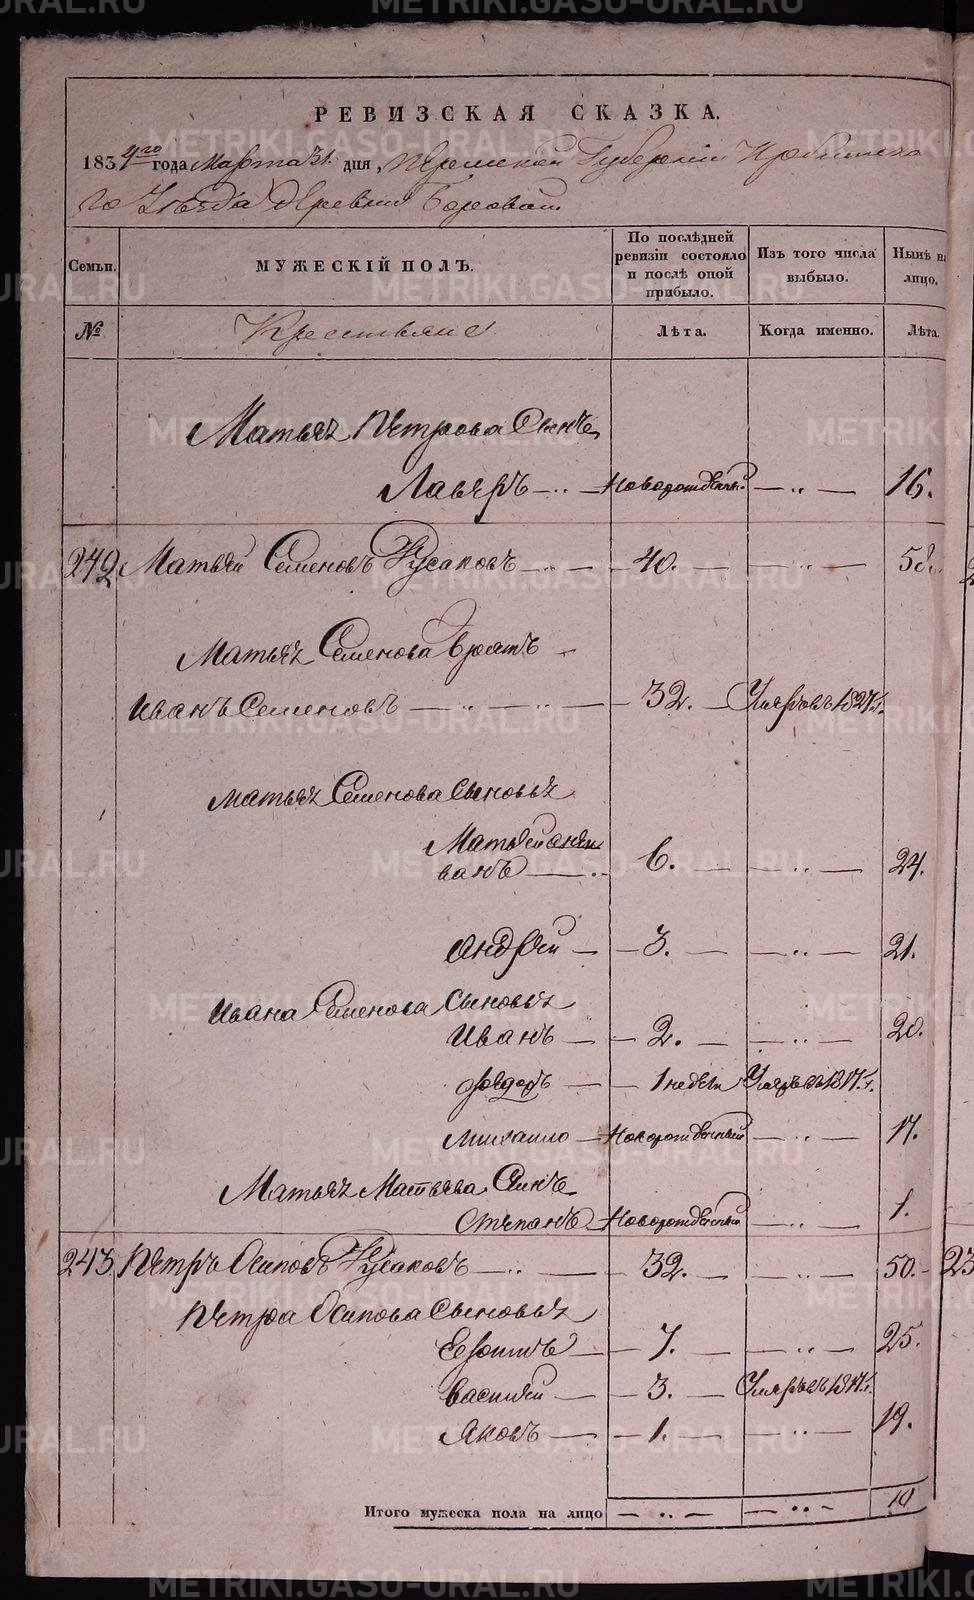 РЕВИЗСКАЯ СКАЗКА.
1834го года Марта 31. дня, Пермской Губернiи Ирбитска
го Уезда деревни Боровой
Семьи. МУЖЕСКIЙ ПОЛЪ. По послѣдней ревизiи состояло и послѣ оной прибыло. Изъ того числа выбыло. Нынѣ на лицо.
№ Крестьяне Лѣта. Когда именно. Лѣта.
Матвѣя Петрова Сынъ
Лавѣръ — новорожденный — 16.
242 Матвѣй Семеновъ Русаковъ — 40. — 58.
Матвѣя Семенова братъ
Иванъ Семеновъ — 32. — Умеръ въ 1827 г.
Матвѣя Семенова Сыновья
Матвѣй
ванъ — 6. — 24.
Андрѣй — 3. — 21.
Ивана Семенова Сыновья
Иванъ — 2. — 20.
Федоръ — 1 недели Умеръ въ 1817 г.
Михаило — Новорожденный — 17.
Матвѣя Матвѣева Сынъ
Степанъ — Новорожденный — 1.
243. Петръ Осиповъ Русаковъ — 32. — 50.
Петра Осипова Сыновья
— 7. — 25.
Василѣй — 3. — Умеръ въ 1817 г.
Яковъ — 1. — 19.
Итого мужеска пола на лицо — 10
METRIKI.GASO-URAL.RU